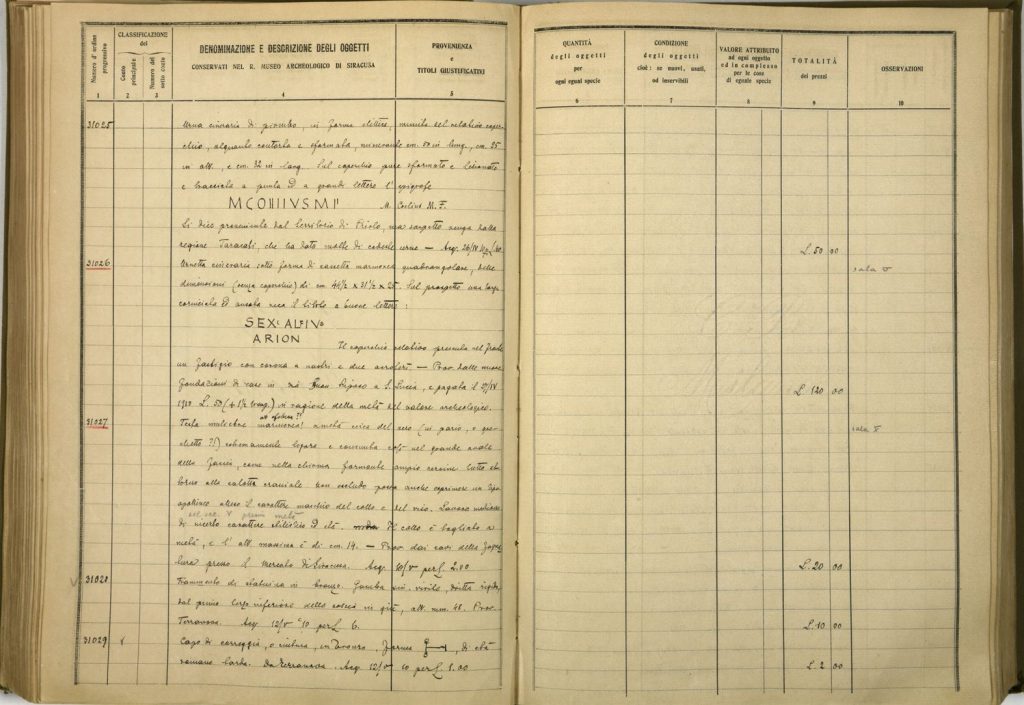 Numero d'ordine progressivo
CLASSIFICAZIONE
del
Conto principale
Numero del sotto conto
DENOMINAZIONE E DESCRIZIONE DEGLI OGGETTI
CONSERVATI NEL R. MUSEO ARCHEOLOGICO DI SIRACUSA
PROVENIENZA
e
TITOLI GIUSTIFICATIVI
1 2 3 4 5
31025 Urna cineraria di piombo, in forma munita del relativo coper-
chio, alquanto contorta e sformata, misurante cm. 50 in lung., cm. 25
in alt., e cm. 32 in larg. Sul coperchio pure sformato e
e tracciata a punta ed a grandi lettere l'epigrafe
M. Coelius M. F.
Si dice proveniente dal territorio di Priolo, ma sospetto venga dalla
regione che ha dato molte di codeste urne — Acq.
31026 Urnetta cineraria sotto forma di cassetta marmorea quadrangolare, delle
dimensioni (senza coperchio) di cm. 46½ x 31½ x 25. Sul prospetto una targa
corniciata ed ansata reca il titolo a buone lettere:
ARION
Il coperchio relativo presenta nel fronte
un fastigio con corona a nastri e due — Prov. dalle nuove
fondazioni di case in a S. Lucia, e pagata il
1910 L. 50 in ragione della metà del valore archeologico.
31027 Testa muliebre marmorea metà circa del vero (in pario, o gre-
chetto ?!)
dello come nella chioma formante ampio cercine tutto at-
torno alla calotta craniale. Non escludo possa anche esprimere un tipo
carattere maschio del collo e del viso. Lavoro mediocre
di incerto carattere stilistico ed età. Il collo è tagliato a
metà, e l'alt. massima è di cm. 19. — Prov. dai cavi della
presso il mercato di Siracusa. Acq. 10/V per L. 2.00
31028 Frammento di statuina in bronzo. Gamba sin. virile, diritta rigida,
dal primo terzo inferiore della coscia in giù, alt. mm. 48. Prov.
Terranova. Acq. 12/V °10 per L. 6.
31029 Capo di correggia, o cintura, in bronzo, forma di età
romana tarda. Da Terranova. Acq. 12/V 10 per L. 1.00
QUANTITÀ
degli oggetti
per
ogni egual specie
CONDIZIONE
degli oggetti
cioè: se nuovi, usati,
od inservibili
VALORE ATTRIBUITO
ad ogni oggetto
ed in complesso
per le cose
di eguale specie
TOTALITÀ
dei prezzi
OSSERVAZIONI
6 7 8 9 10
L. 50 00
sala V
L. 120 00
sala V
L. 20 00
L. 10 00
L. 2 00